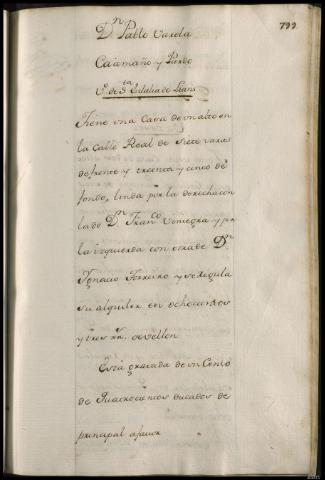 799
Dn Pablo Varela
Caamaño y Pardo
Sr de Sta Eulalia de Leans
Tiene una Casa de un alto en
la Calle Real de siete varas
de frente y treinta y cinco de
fondo, linda por la derecha con
la de Dn Franco y por
la izquierda con otra de Dn
Ygnacio Ferreiro y se regula
su alquiler en ochocientos
y tres rs. de vellon
Está gravada de un Censo
de ducados de
principal a favor